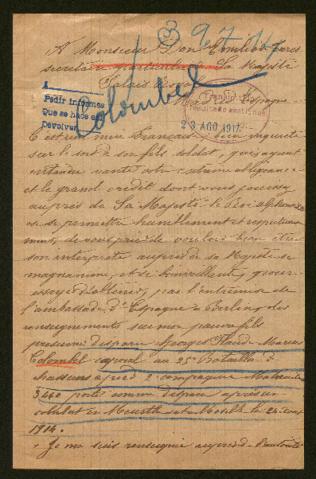 397.114
A Monsieur Don Emilio de Torres
secrétaire particulier de Sa Majesté
Palais R
Madrid Espagne
Pedir informes
Que se hace esto
Devolver
Colombel
23 AGO 1917
C'est une mère Française bien inquiète
sur le sort de son fils soldat, qui ayant
entendu vanter votre extrême obligeance
et le grand crédit dont vous jouissez
auprès de Sa Majesté le Roi Alphonse XIII
ose se permettre humblement et respectueuse
ment, de vous prier de vouloir bien être
son interprète auprès de sa Majesté si
magnanime, et si bienveillant, pour
essayer d'obtenir, par l'entremise de
l'ambassade d'Espagne à Berlin des
renseignements sur mon pauvre fils
présumé disparu Georges Marcel
Colombel caporal au 25e Bataillon de
chasseurs à pied 2e compagnie Matricule
3460 porté comme disparu après un
combat en Meurthe et Moselle le 24
1914.
Je me suis renseignée auprès de l'autorité